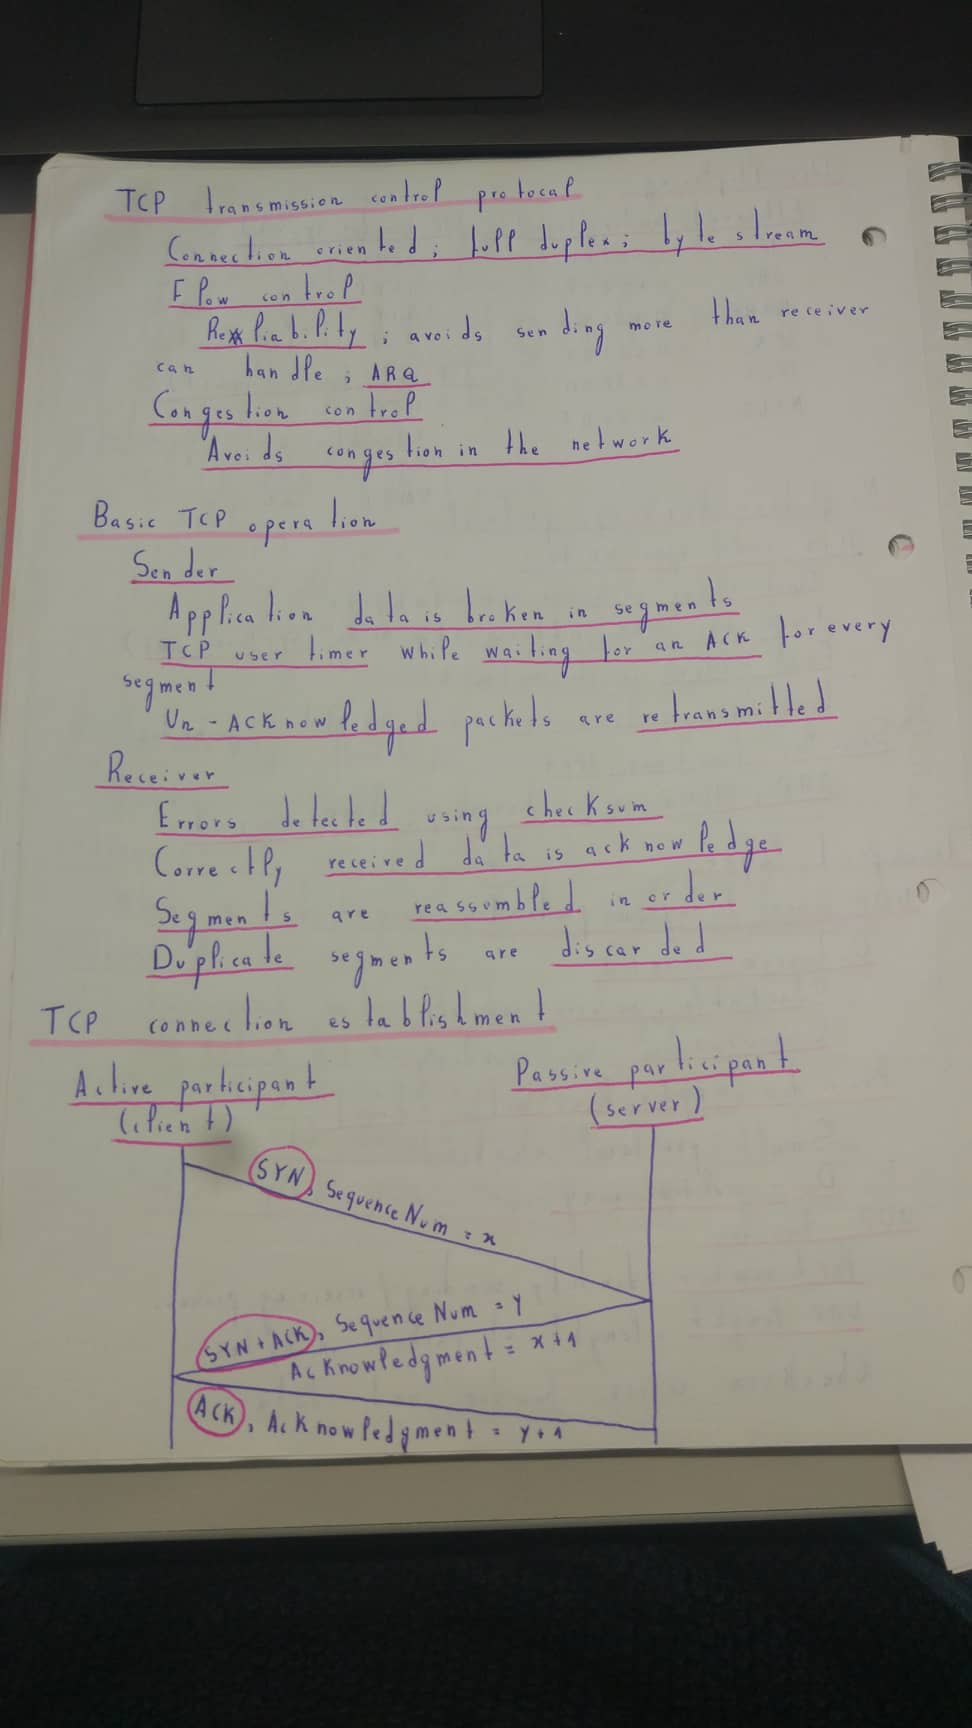 TCP transmission control protocal
Connection oriented; full duplex; byte stream
Flow control
Reliability; avoids sending more than receiver
can handle; ARQ
Congestion control
Avoids congestion in the network
Basic TCP operation
Sender
Application data is broken in segments
TCP user timer while waiting for an ACK for every
segment
Un-ACKnowledged packets are retransmitted
Receiver
Errors detected using checksum
Correctly received data is acknowledge
Segments are reassombled in order
Duplicate segments are discarded
TCP connection establishment
Active participant
(client)
Passive participant
(server)
SYN, SequenceNum = x
SYN + ACK, SequenceNum = y
Acknowledgment = x+1
ACK, Acknowledgment = y+1